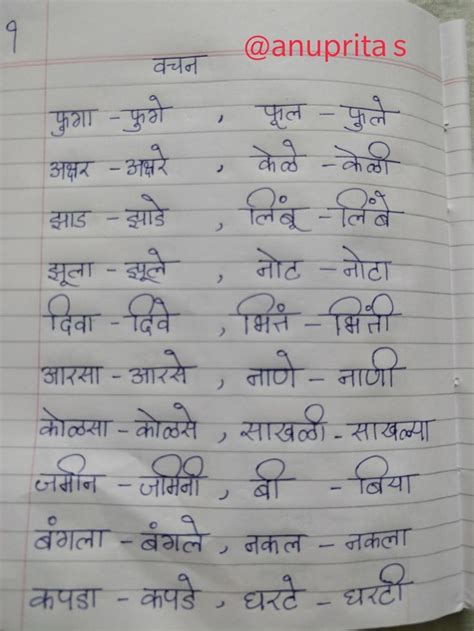 १
@anuprita s
वचन
फुगा - फुगे , फूल - फुले
अक्षर - अक्षरे , केळे - केळी
झाड - झाडे , लिंबू - लिंबे
झूला - झूले , नोट - नोटा
दिवा - दिवे , भिंत - भिंती
आरसा - आरसे , नाणे - नाणी
कोळसा - कोळसे , साखळी - साखळ्या
जमीन - जमिनी , बी - बिया
बंगला - बंगले , नकल - नकला
कपडा - कपडे , घरटे - घरटी